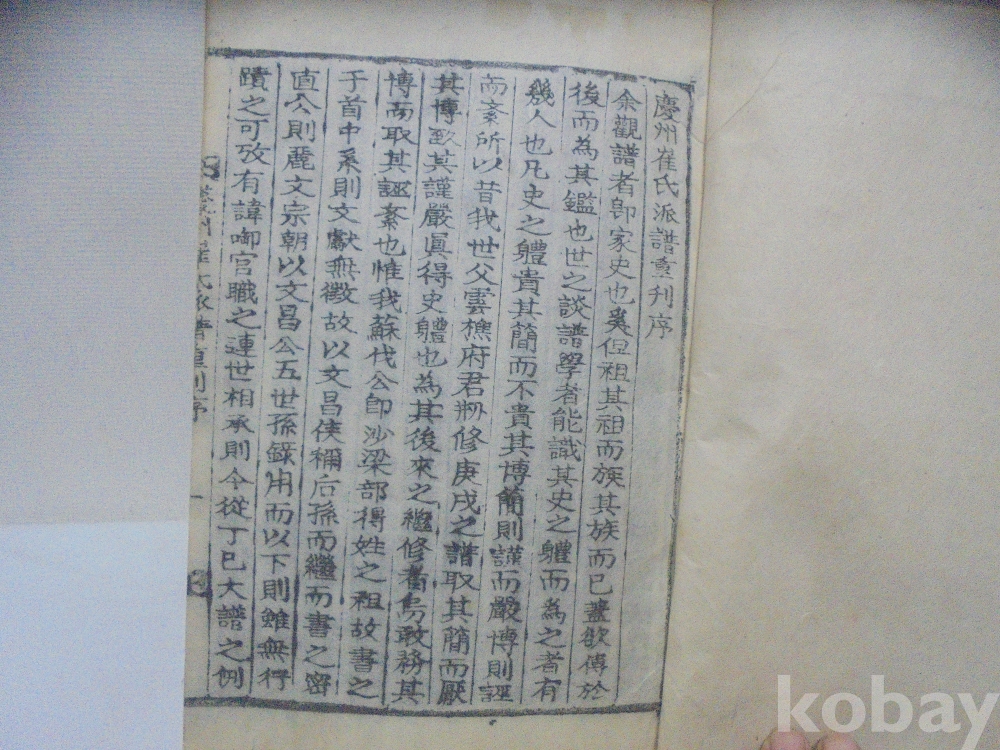 慶州崔氏派譜重刊序
余觀譜者卽家史也奚但祖其祖而族其族而已盖欲傳於
後而為其鑑也世之談譜學者能識其史之軆而為之者有
幾人也凡史之軆貴其簡而不貴其博簡則謹而嚴博則誣
而紊所以昔我世父雲樵府君刱修庚戌之譜取其簡而厭
其博致其謹嚴眞得史軆也為其後來之繼修者烏敢務其
博而取其誣紊也惟我蘇伐公卽沙梁部得姓之祖故書之
于首中系則文獻無徵故以文昌侯稱后孫而繼而書之密
直公則麗文宗朝以文昌公五世孫錄用而以下則雖無行
蹟之可攷有諱啣官職之連世相承則今從丁巳大譜之例
慶州崔氏派譜重刊序
一
kobay